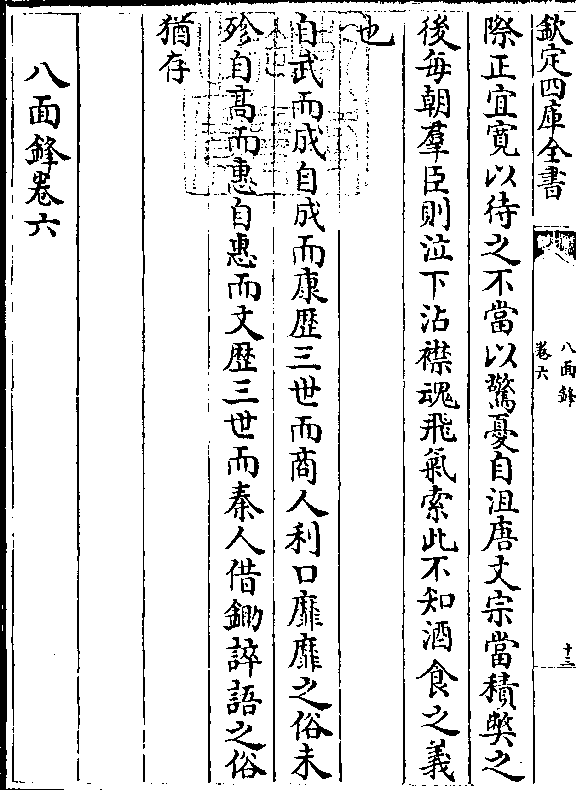 欽定四庫全書
八面鋒
卷六
十三
際正宜寛以待之不當以驚憂自沮唐文宗當積弊之
後每朝羣臣則泣下沾襟魂飛氣索此不知酒食之義
也
自武而成自成而康歴三世而商人利口靡靡之俗未
殄自髙而惠自惠而文歴三世而秦人借鋤誶語之俗
猶存
八面鋒卷六